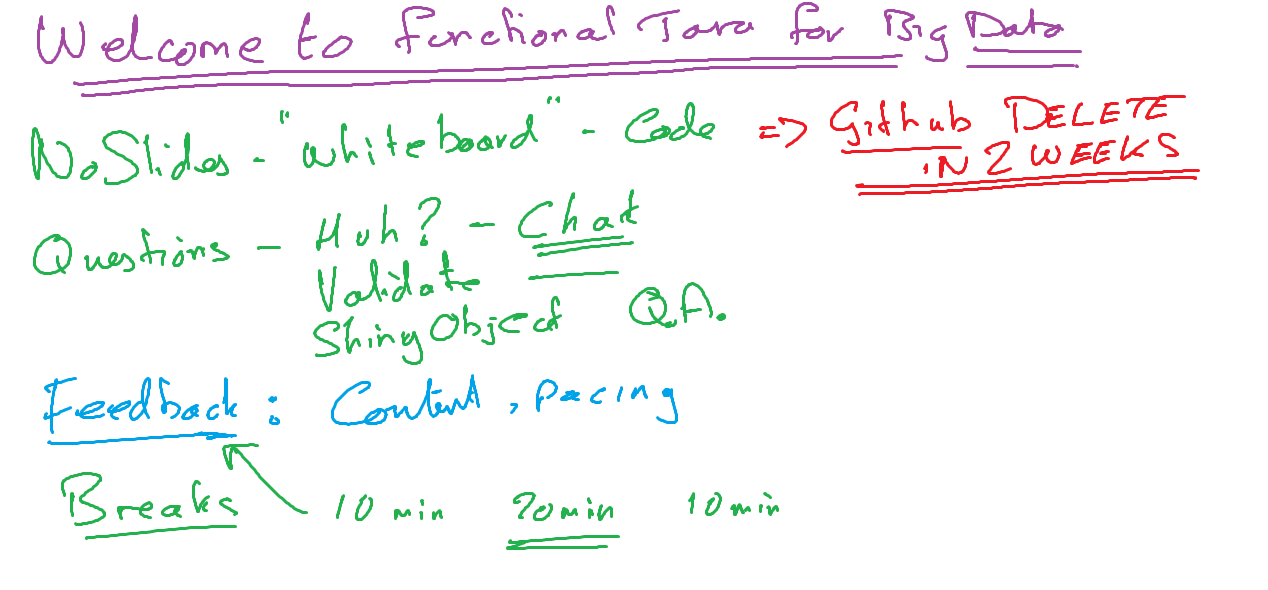 Welcome to Functional Java for Big Data
No Slides - "Whiteboard" - Code => Github DELETE
IN 2 WEEKS
Questions - Huh? - Chat
Validate
Shiny Object Q.A.
Feedback : Content, pacing
Breaks 10 min 20 min 10 min